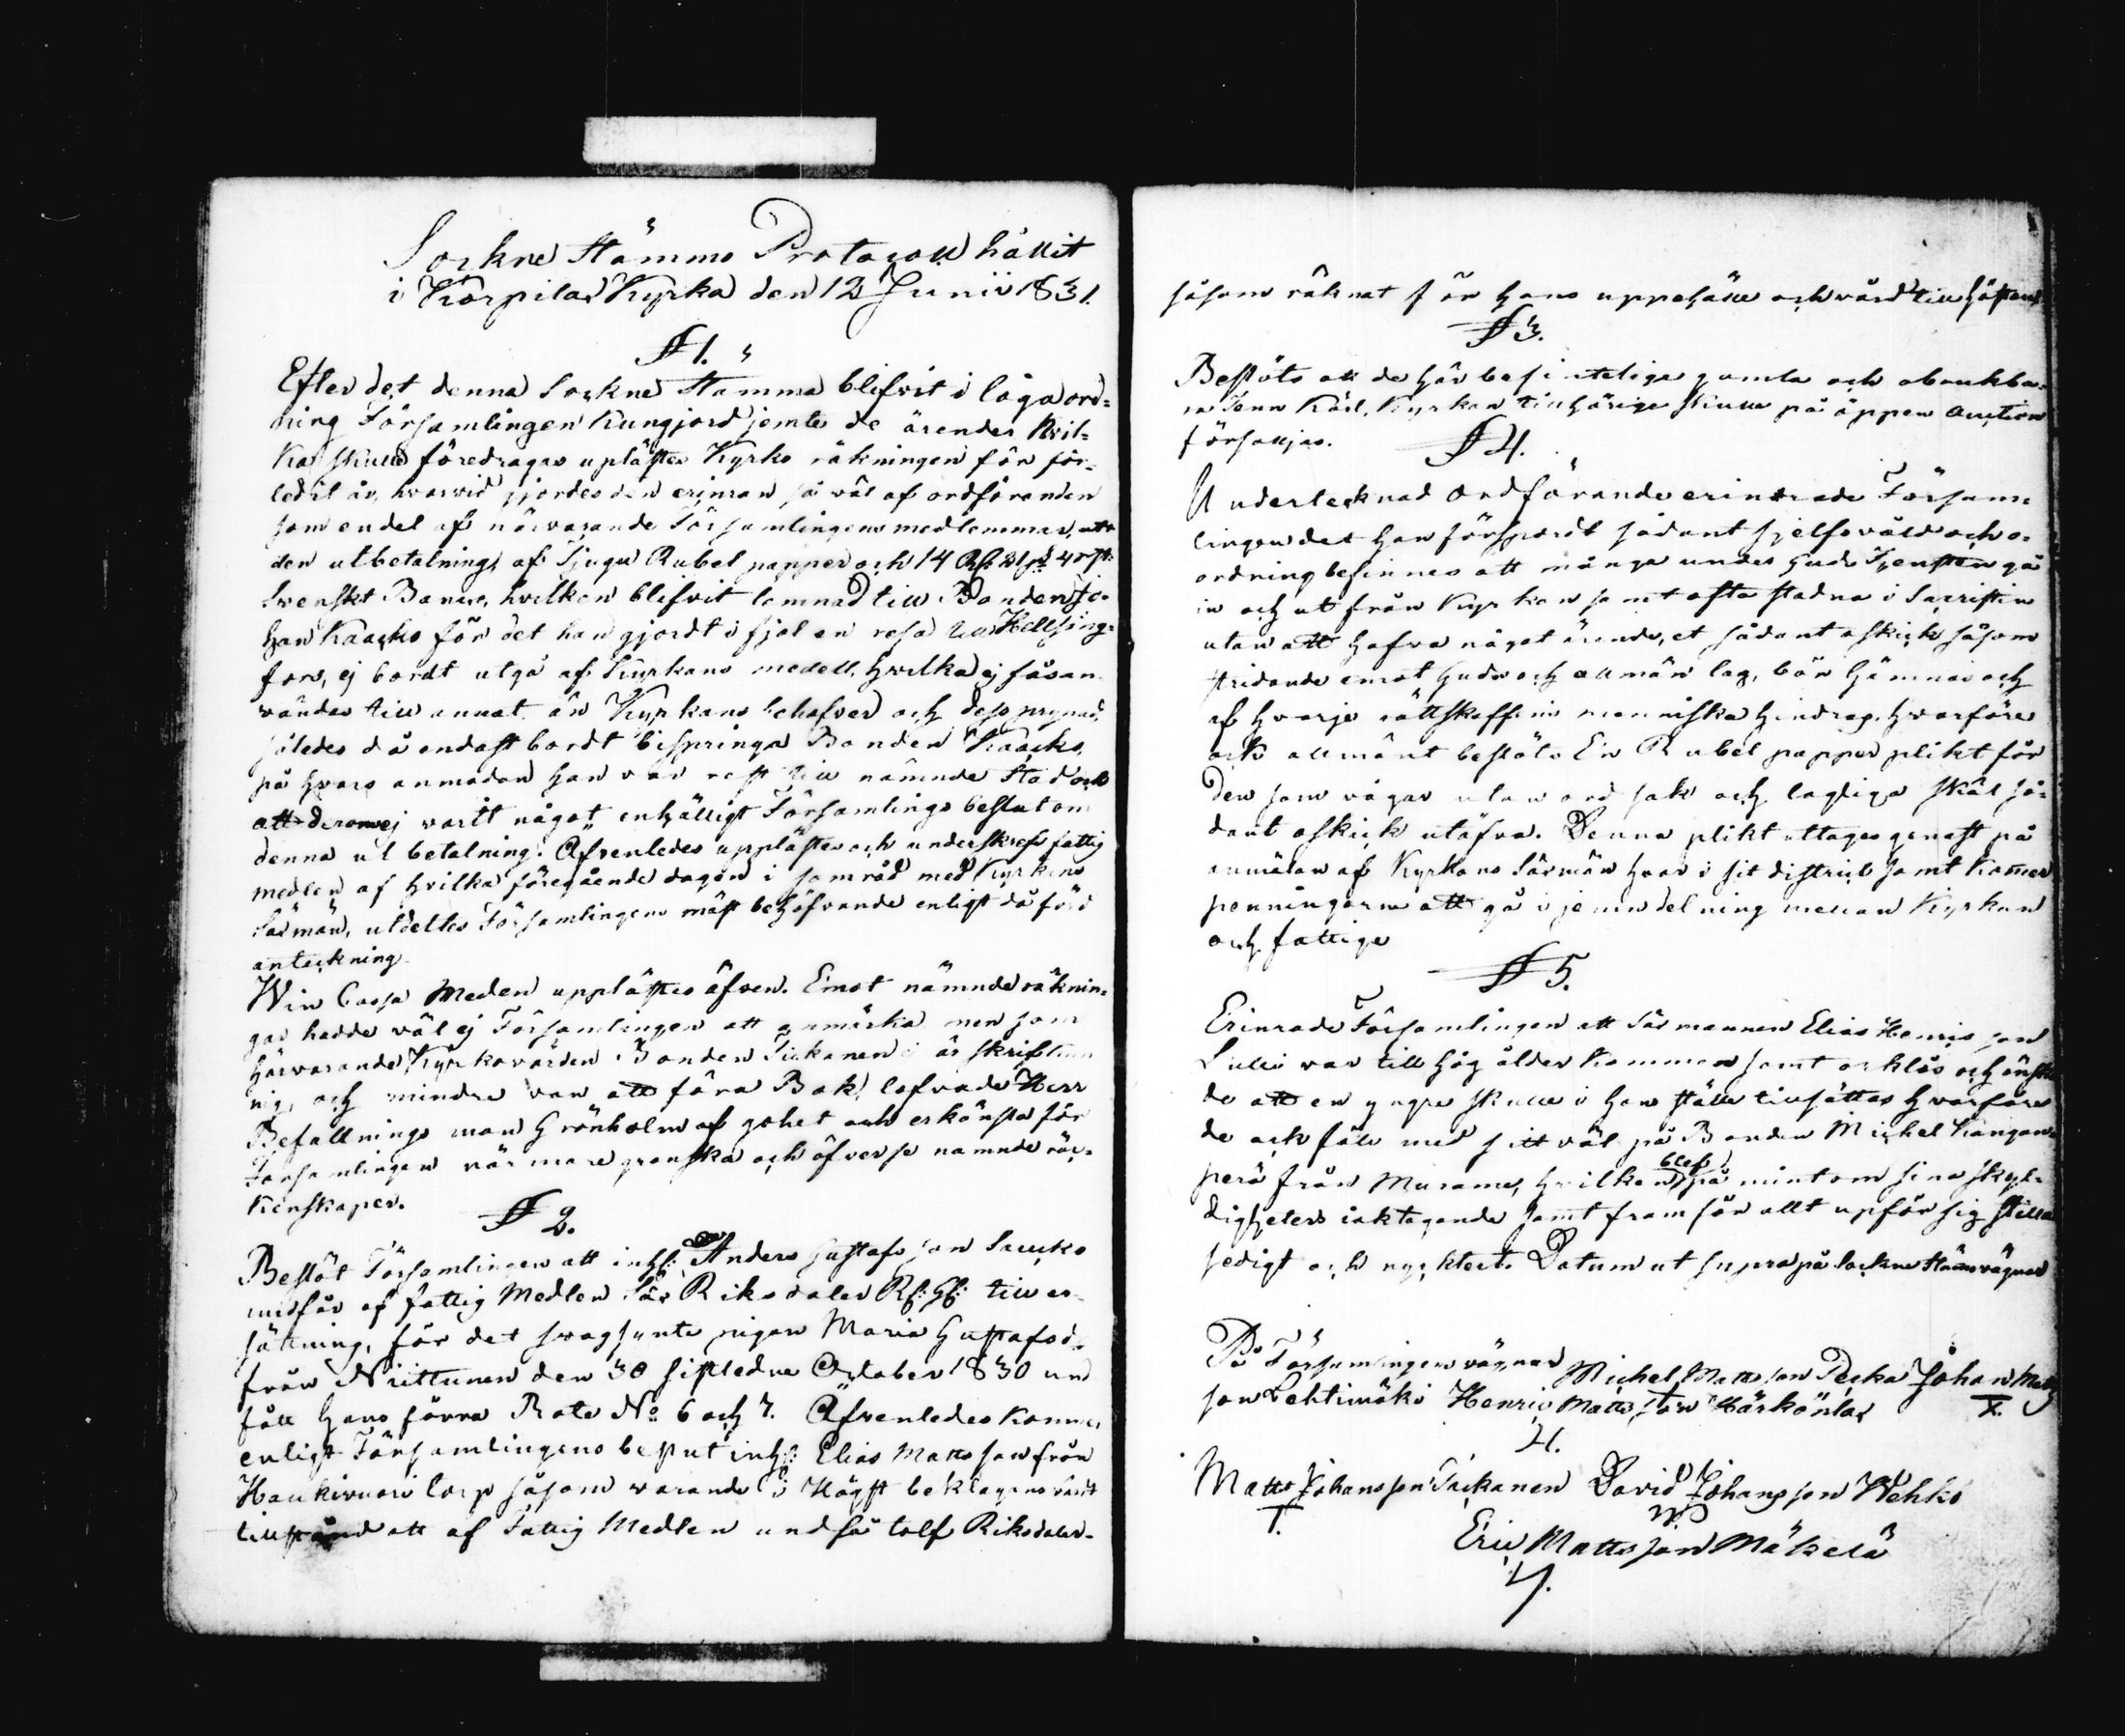 Sockne Stämmo Protocoll hållit
i Korpilax Kyrka den 12 Junii 1831.
§ 1.
Efter det denna Sockne Stämma blifvit i laga ord-
ning Församlingen kungjord jemte de ärender hvil-
ka skulle föredragas uplästes Kyrko räkningen för för-
ledit år, hvarvid gjordes den erinran så väl af ordföranden
som endel af närvarande Församlingens medlemmar, att
den utbetalning af Tjugu Rubel papper och 14 Rd 21 s 4 rst
Svenskt Banco, hvilken blifvit lemnad till Bonden Jo-
han Kaacko för det han gjordt i fjol en resa till Hellsing-
fors, ej bordt utgå af Kyrkans medell, hvilka ej få an-
vändas till annat än Kyrkans behofver och dess prynad,
således då endast bordt bespringa Bonden Kaacko,
på hvars anmodan han var rest till nämnde stad och
att derom ej varit något enhälligt Församlings beslut om
denna utbetalning. Äfvenledes upplästes och underskrefs fattig
medlen af hvilka föregående dagen i samråd med Kyrkans
Säxmän, utdeltes Församlingens mäst behöfvande enligt då förd
anteckning.
Win Cassa Medlen upplästes äfven. Emot nämnde räknin-
gar hadde väl ej Församlingen att anmärka men som
härvarande Kyrkovärden Bonden Tickanen är skrifkun
nig, och mindre van att föra Bok, lofvade Herr
Befallnings man Grönholm af gohet och erkänsla för
Församlingen närmare granska och öfverse namnde räc-
kenskaper.
§ 2.
Beslöt Församlingen att inhs: Anders Gustafs son Saucko
undfår af fattig Medlen Sex Riksdaler Rs: Gs: till er-
sättning, för det svagsinte pigan Maria Gustafsd:
från Niittunen den 30 sistledne October 1830 und
fått hans förra Rote No 6 och 7. Äfvenledes kommer
enligt Församlingens beslut inhs: Elias Matts son från
Haukivuori Torp såsom varande i Högst beklagansvärdt
tillstånd att af Fattig Medlen undfå tolf Riksdaler-
såsom räknat för hans uppehälle och vård till hösten
§ 3.
Beslöts att de här befintelige gamla och obrukba-
ra Tenn Kärl, Kyrkan tillhörige skulle på öppen Auction
försäljas.
§ 4.
Undertecknad Ordförande erinrade Försam-
lingen det han försport sådant sjelfsvåld och o-
ordning befinnes att många under Guds Tjensten gå
in och ut från Kyrkan samt ofta stadna i Sacristin
utan att hafva något ärende, et sådant oskick såsom
stridande emot Guds och allmän lag, bör hämnas och
af hvarje rättskaffens menniska hindras, hvarföre
ock allmänt beslöts En Rubel papper plikt för
Den som vågar utan ord sak och lagliga skäl så-
dant oskick utöfva. Denna plikt uttages genast på
anmälan af Kyrkans Säxmän hvar i sit district samt kommer
penningarne att gå i jemn delning mellan Kyrkan
och fattige
§ 5.
Erinrade Församlingen att Säxmannen Elias Henrics son
Lulli var till hög ålder kommen samt orklös och önska-
de att en yngre skulle i hans ställe tillsättas hvarföre
de ock föll med sitt väl på Bonden Michel Kangans-
perä från Murame, hvilken blef påmint om sine skyl-
digheters iaktagande samt framför allt upför sig stilla
sedigt och nycktert. Datum ut supra på Sockne Stäms vägnar
På Församlingens vägnar Michel Matts son Pecka Johan Matts
son Lehtimäki Henric Mattsson Härkönlax X.
H.
Matts Johansson Tickanen David Johansson Wehko
T.
Eric Mattsson Mäkelä
4.